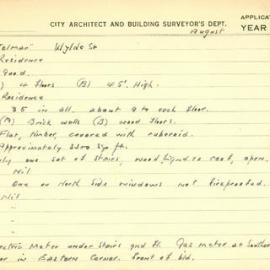 CITY ARCHITECT AND BUILDING SURVEYOR'S DEPT.
APPLICA
YEAR
August
Telmar" Wylde St
Residence
Good.
) 4 Floors (B) 45' High.
Residence
35 in all. about 9 to each floor.
(A) Brick walls (B) wood floors.
Flat, timber, covered with ruberoid.
Approximately sq ft.
only one set of stairs, wood, to roof, open.
Nil
One on North Side windows not fireproofed.
Nil
Meter under stairs gnd fl. Gas meter at Southern
in Eastern Corner. Front of bld.